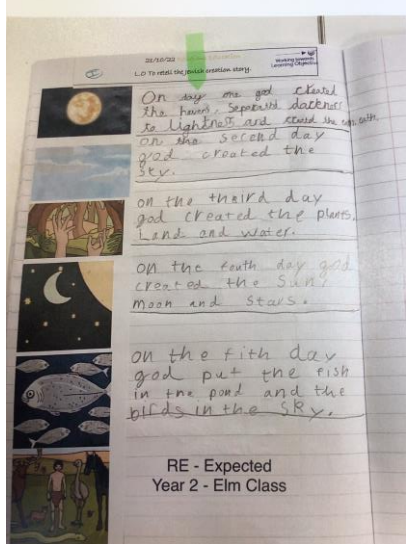 21/10/22
L.O To retell the Jewish creation story.
Working towards
Learning Objective
On day one god created
the heven, Separated darkness
to lightness and created the earth.
on the second day
god created the
sky.
on the theird day
god created the plants,
Land and water.
on the fouth day god
created the Sun,
Moon and Stars.
on the fith day
god put the fish
in the pond and the
birds in the sky.
RE - Expected
Year 2 - Elm Class